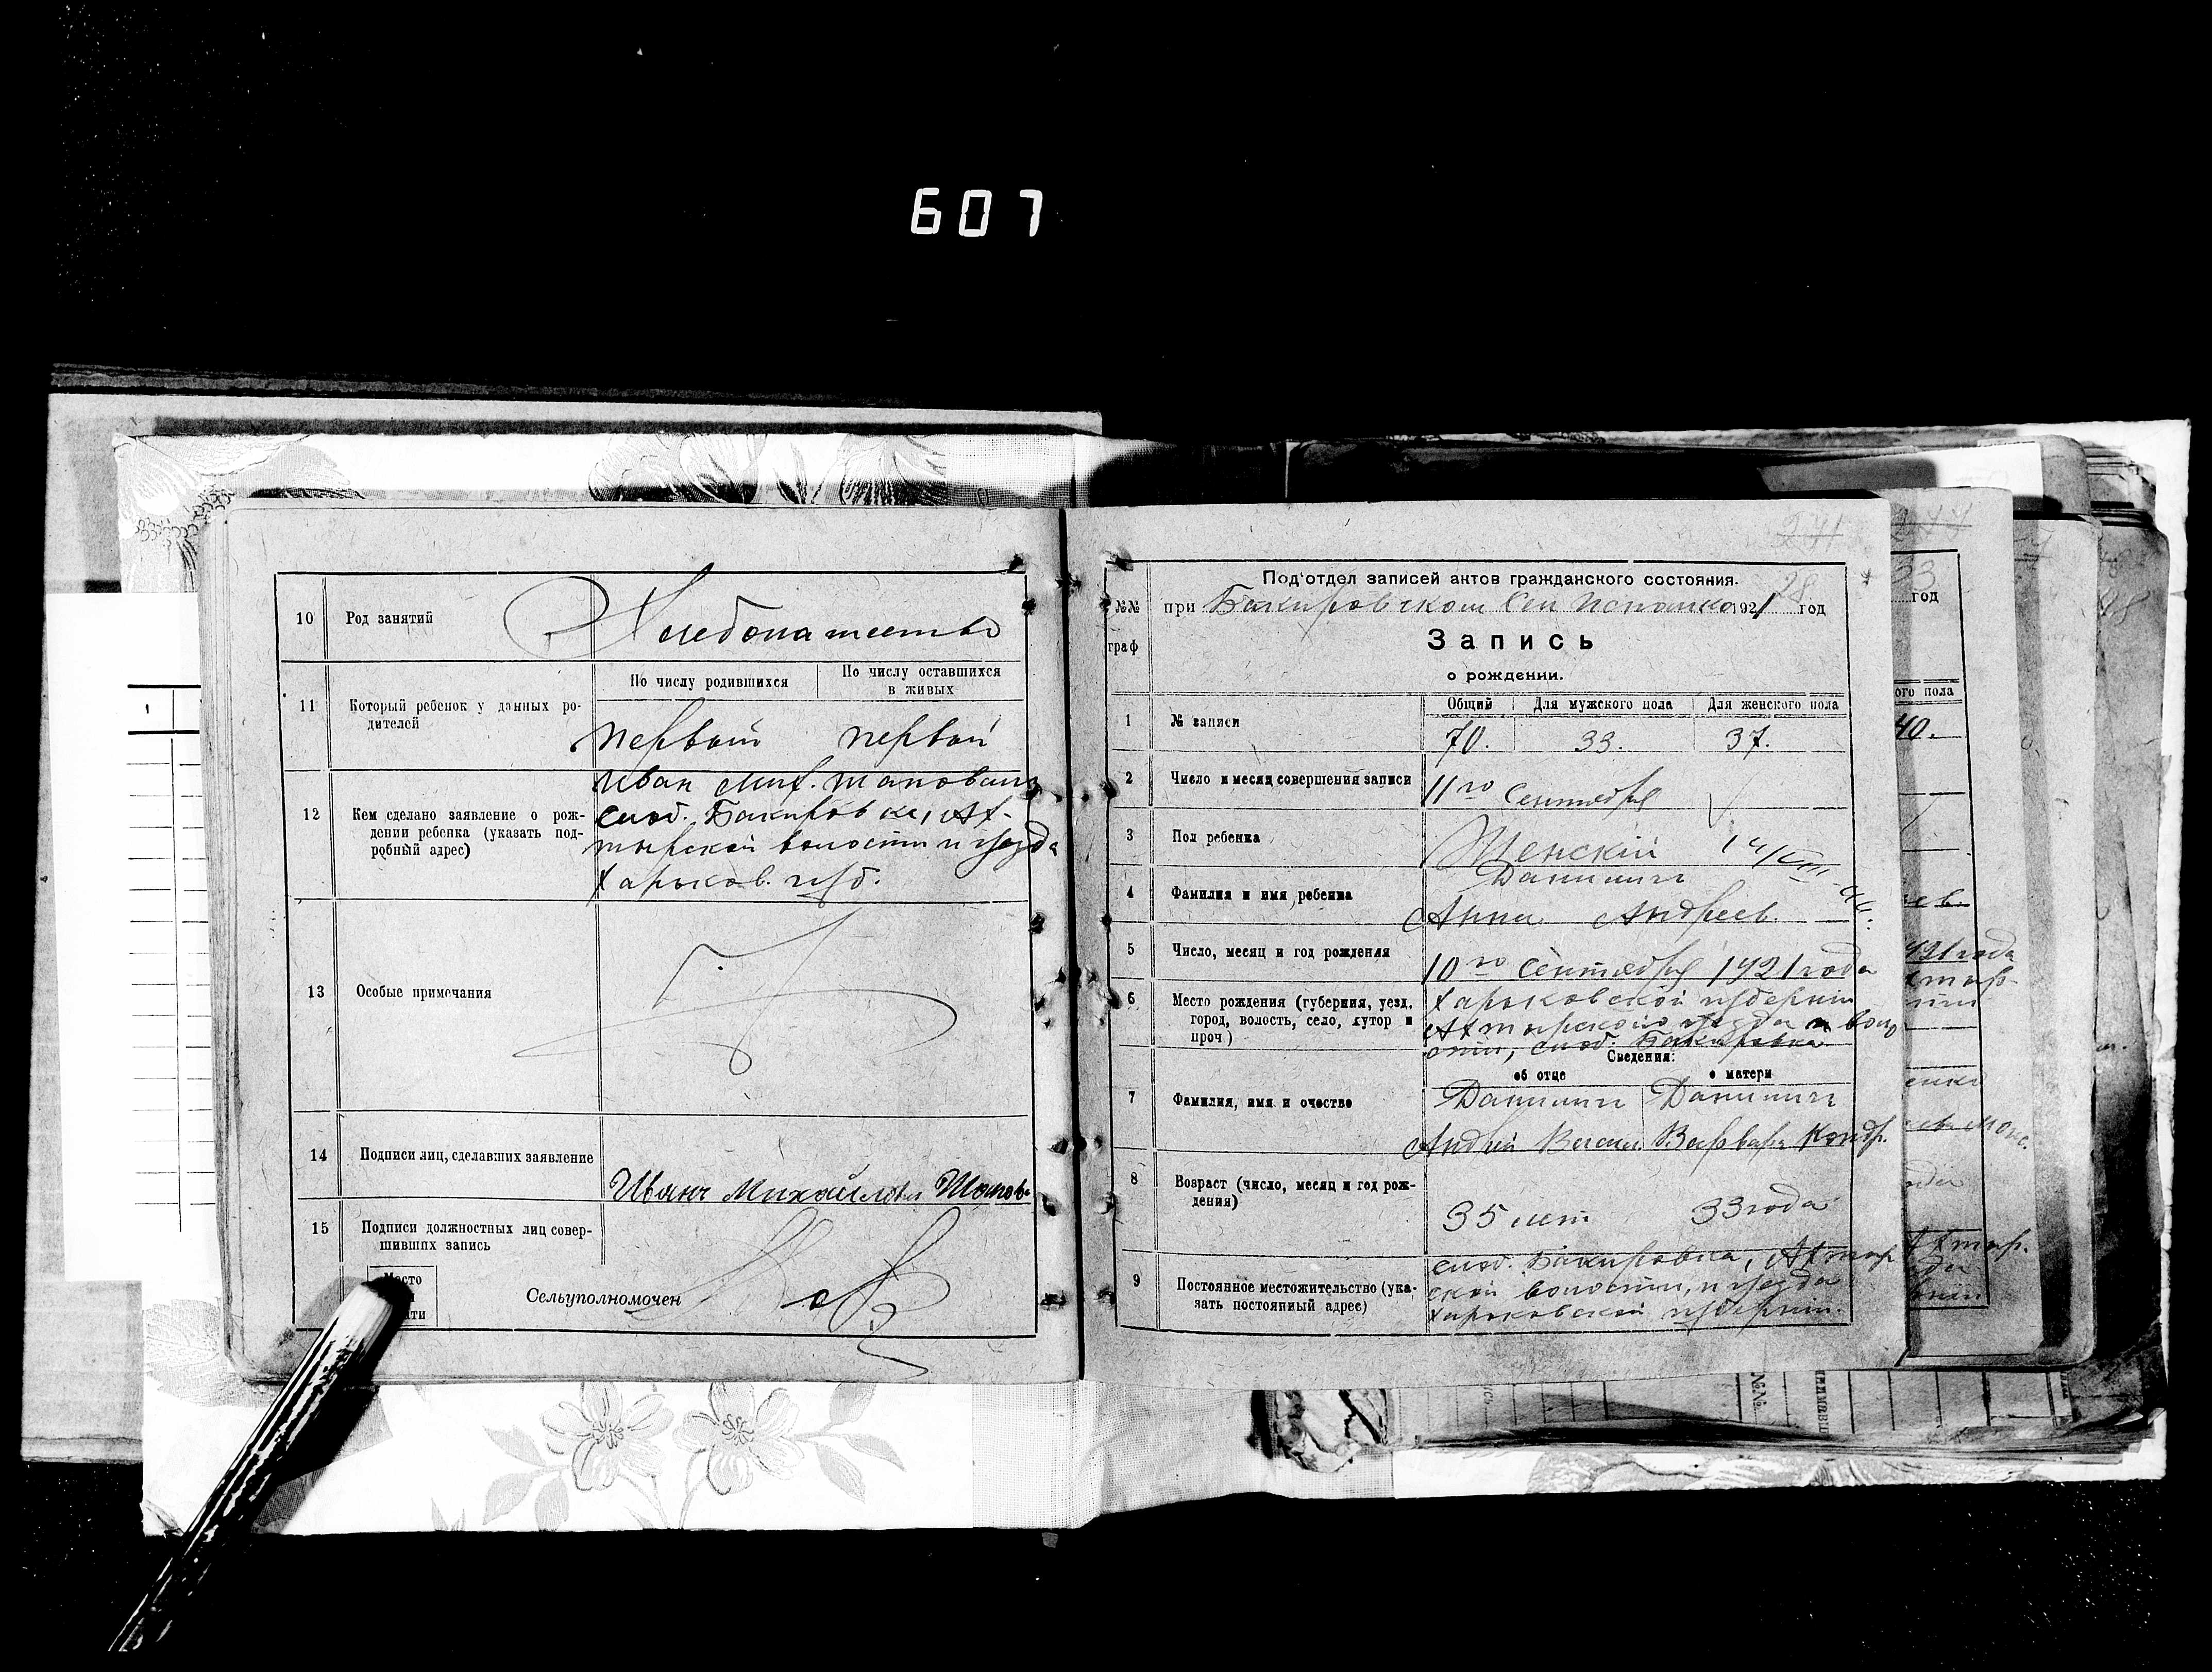 607
10 Род занятий Хлебопашество
11 Который ребенок у данных ро-
дителей
По числу родившихся По числу оставшихся
в живых
первый первый
12 Кем сделано заявление о рож-
дении ребенка (указать под-
робный адрес)
Иван Мих. Шаповал
слоб. Бакировки, Ах-
тырской волости и уезда
Харьков. губ.
13 Особые примечания
14 Подписи лиц, сделавших заявление
Иванъ Михайлови Шапов
15 Подписи должностных лиц совер-
шивших запись
Место
ати
Сельуполномочен
271
28
№№
граф
Под‘отдел записей актов гражданского состояния.
при Бакировском 1921 год
Запись
о рождении.
1 № записи
Общий Для мужского пола Для женского пола
70. 33. 37.
2 Число и месяц совершения записи 11го Сентября
3 Пол ребенка Женскій
4 Фамилия и имя ребенка
Данилич
Анна Андреев.
5 Число, месяц и год рождения 10го Сентября 1921 года
6 Место рождения (губерния, уезд,
город, волость, село, хутор и
проч)
Харьковской губерніи
Ахтырского уезда и воло
сти, слоб. Бакировка
Сведения:
об отце о матери
7 Фамилия, имя и очество
Данилич Данилич
Андрій Васил. Варвара Кондр.
8 Возраст (число, месяц и год рож-
дения)
35 лет 33 года
9 Постоянное местожительство (ука-
зать постоянный адрес)
слоб. Бакировка, Ахтыр
ской волости, и уезда
Харьковской губерніи.
277
33
год
ого пола
40.
ев.
921 года